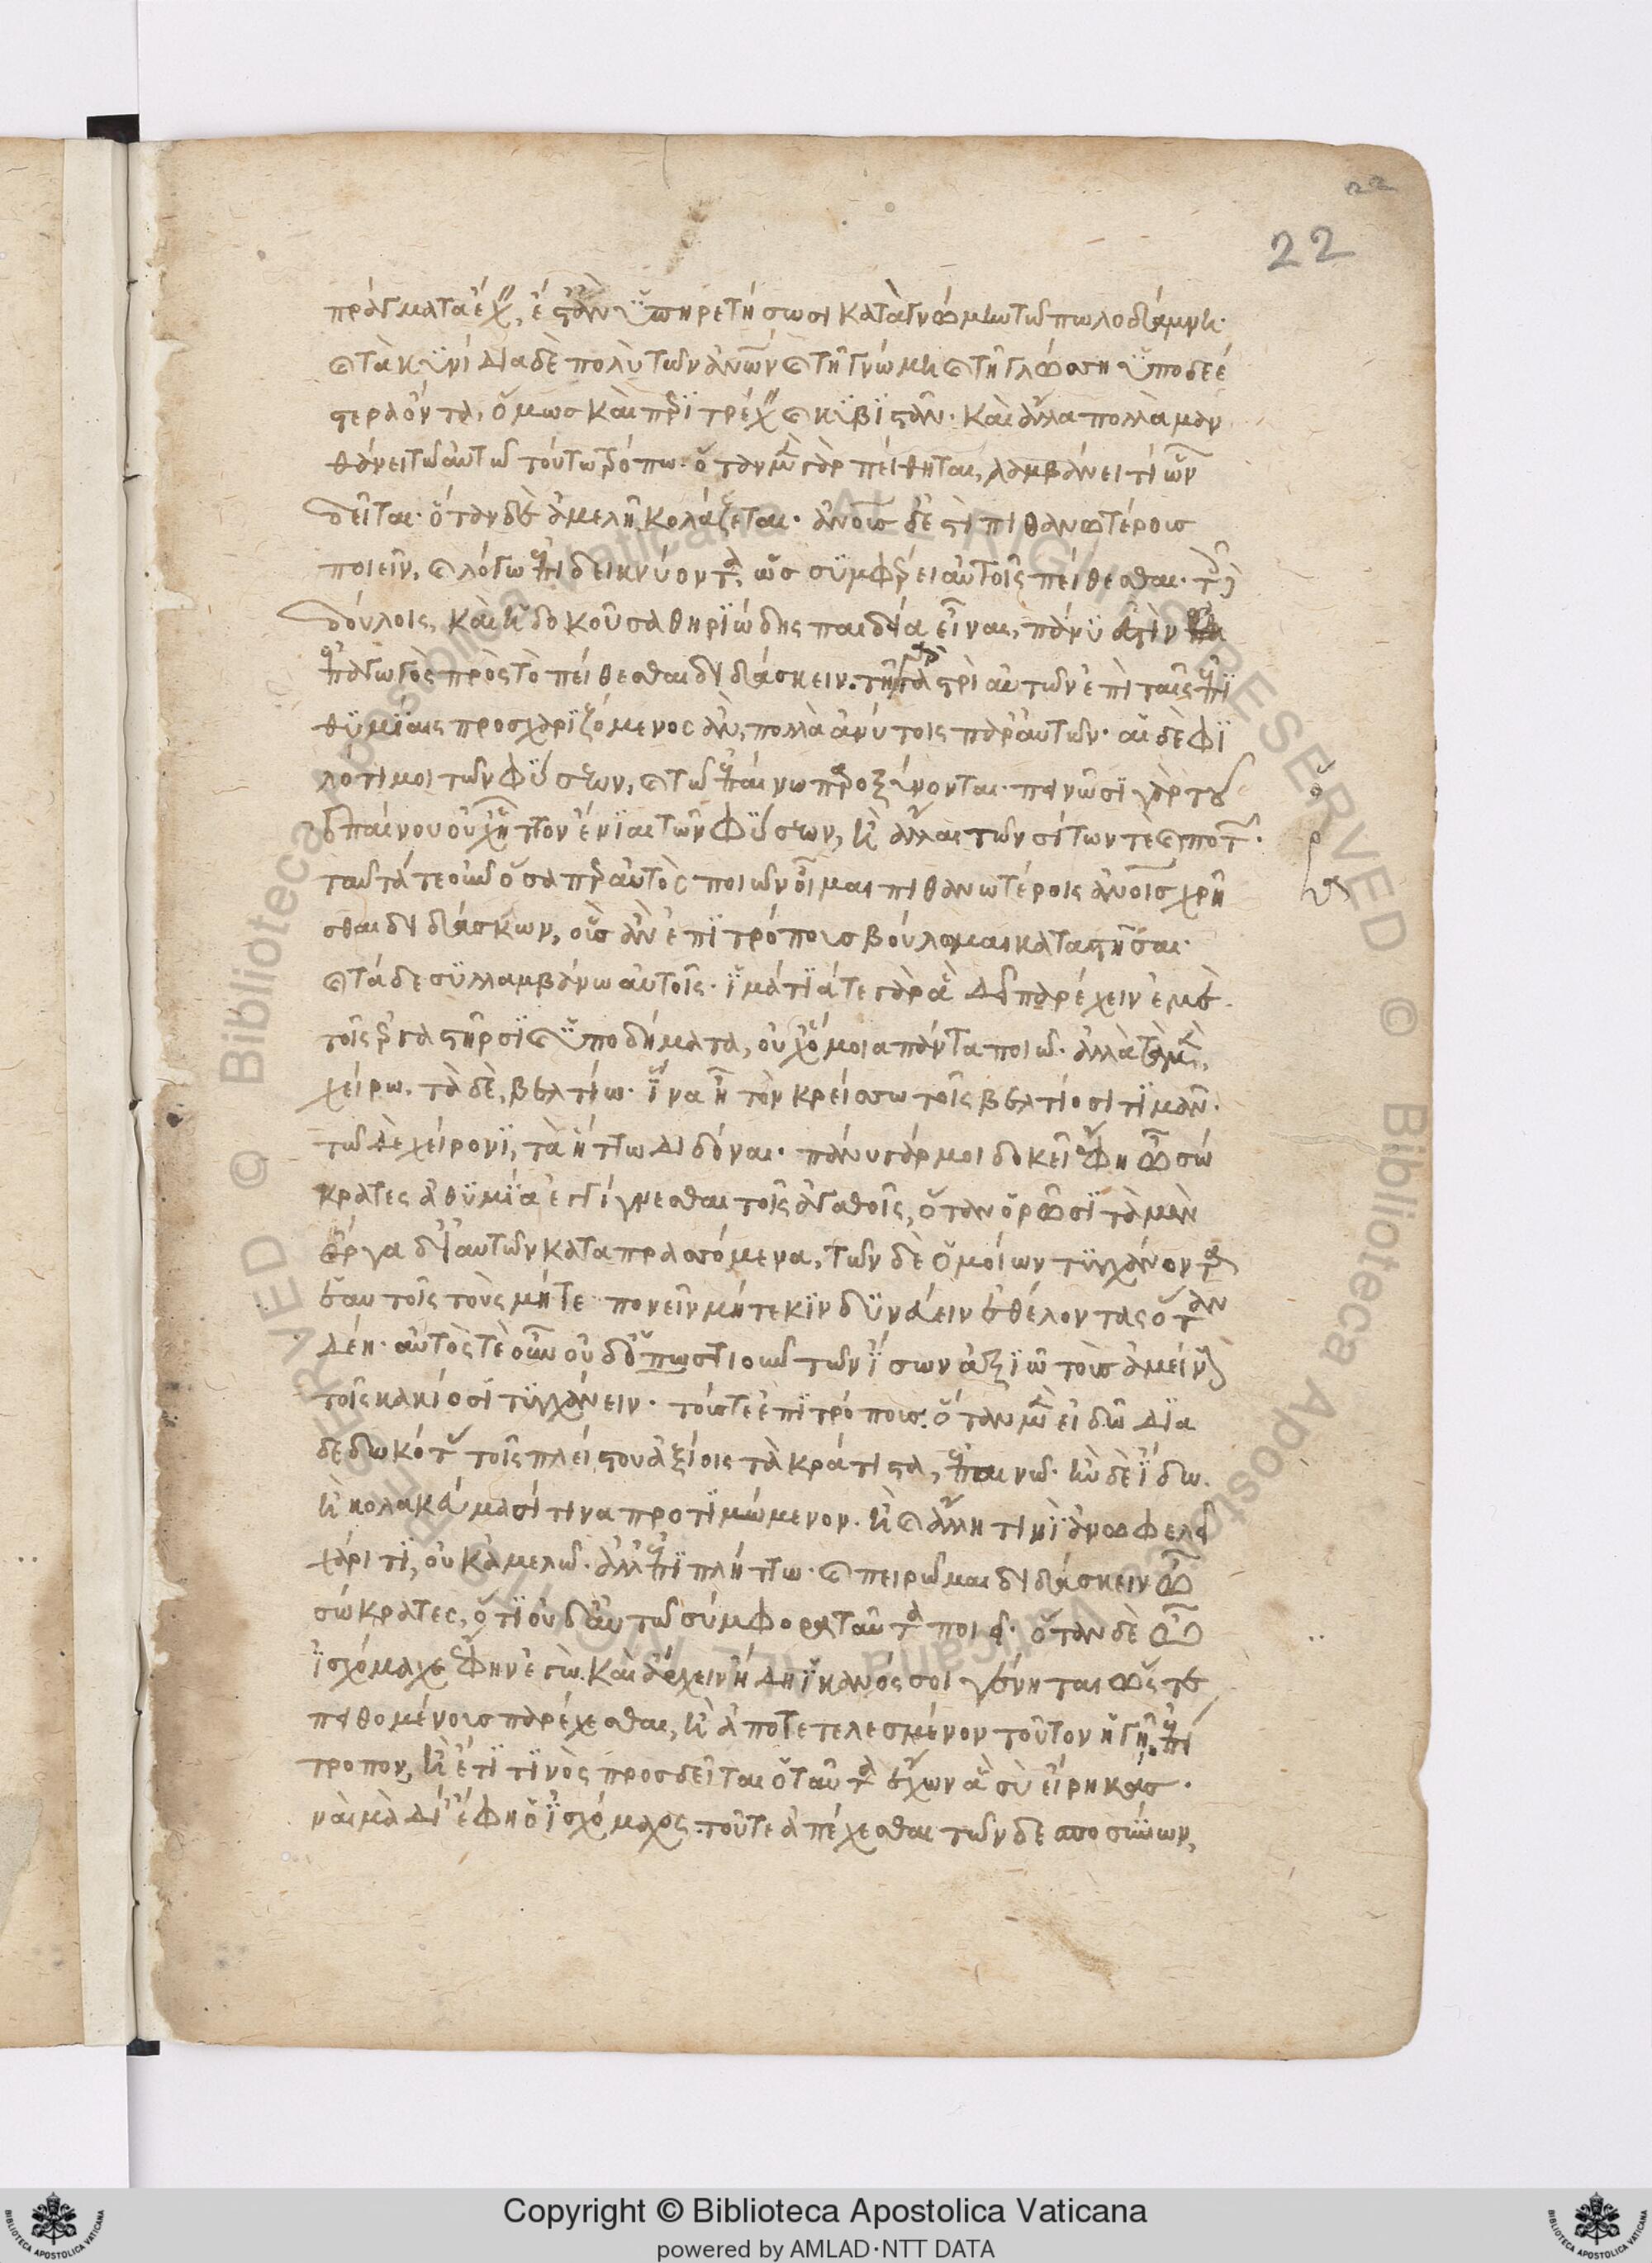 22
22
πράγματα ἔχειν, ἔστ' ἂν ὑπηρετήσωσι κατὰ γνώμην τῷ πωλοδάμνῃ·
καὶ τὰ κυνίδια δὲ πολὺ τῶν ἀνῶν καὶ τῇ γνώμῃ καὶ τῇ γλώσσῃ ὑποδεέ
στερα ὄντα, ὅμως καὶ περιτρέχειν καὶ κυβιστᾶν· καὶ ἄλλα πολλὰ μαν
θάνει τῷ αὐτῷ τούτῳ τρόπῳ· ὅταν μὲν γὰρ πείθηται, λαμβάνει τι ὧν
δεῖται· ὅταν δὲ ἀμελῇ, κολάζεται· ἀνοις δέ ἐστι πιθανωτέροις
ποιεῖν, καὶ λόγῳ ἐπιδεικνύοντα, ὡς συμφέρει αὐτοῖς πείθεσθαι· τοῖς δὲ
δούλοις, καὶ ἡ δοκοῦσα θηριώδης παιδεία εἶναι, πάνυ ἐστὶν
ἐπαγωγὸς πρὸς τὸ πείθεσθαι διδάσκειν· τῇ γὰρ γαστρὶ αὐτῶν ἐπὶ ταῖς ἐπι
θυμίαις προσχαριζόμενος ἂν, πολλὰ ἀνύτοις παρ' αὐτῶν· αἱ δὲ φι
λότιμοι τῶν φύσεων, καὶ τῷ ἐπαίνῳ παροξύνονται· πεινῶσι γὰρ τοῦ
ἐπαίνου οὐχ ἧττον ἔνιαι τῶν φύσεων, ἢ ἄλλαι τῶν σίτων τε καὶ ποτῶν·
ταῦτά τε οὖν ὅσα περ αὐτὸς ποιῶν οἶμαι πιθανωτέροις ἀνοις χρῆ
σθαι διδάσκων, οἷς ἂν ἐπιτρόποις βούλωμαι καταστῆσαι·
καὶ τάδε συλλαμβάνω αὐτοῖς· ἱμάτιά τε γὰρ ἃ δεῖ παρέχειν ἐμὲ
τοῖς ἐργαστῆρσι καὶ ὑποδήματα, οὐχ ὅμοια πάντα ποιῶ· ἀλλὰ τὰ μὲν,
χείρω· τὰ δὲ, βελτίω· ἵνα ᾖ τὸν κρείσσω τοῖς βελτίοσι τιμᾶν·
τῷ δὲ χείρονι, τὰ ἥττω διδόναι· πάνυ γάρ μοι δοκεῖ ἔφη ὦ σώ
κρατες ἀθυμία ἐγγίγνεσθαι τοῖς ἀγαθοῖς, ὅταν ὁρῶσι τὰ μὲν
ἔργα δι' αὐτῶν καταπρασσόμενα, τῶν δὲ ὁμοίων τυγχάνοντας
ἑαυτοῖς τοὺς μήτε πονεῖν μήτε κινδυνεύειν ἐθέλοντας ὅταν
δέῃ· αὐτός τε οὖν οὐδ' ὅπως τιοῦν τῶν ἴσων ἀξιῶ τοὺς ἀμείνους
τοῖς κακίοσι τυγχάνειν· τούς τε ἐπιτρόπους· ὅταν μὲν εἰδῶ δια
δεδωκότας τοῖς πλείστου ἀξίοις τὰ κράτιστα, ἐπαινῶ· ἢν δὲ ἴδω
ἢ κολακεύμασί τινα προτιμώμενον· ἢ καὶ ἄλλῃ τινὶ ἀνωφελεῖ
χάριτι, οὐκ ἀμελῶ· ἀλλ' ἐπιπλήττω· καὶ πειρῶμαι διδάσκειν ὦ
σώκρατες, ὅτι οὐδ' αὑτῷ σύμφορα ταῦτα ποιεῖ· ὅταν δὲ ὦ
ἰσχόμαχε ἔφην ἐγὼ. καὶ ἄρχειν ἤδη ἱκανός σοι γένηται ὥστε
πειθομένους παρέχεσθαι, ἢ ἀποτετελεσμένον τοῦτον ἡγῇ ἐπί
τροπον, ἢ ἔτι τινὸς προσδεῖται ὁ ταῦτα ἔχων ἃ σὺ εἴρηκας·
ναὶ μὰ δί' ἔφη ὁ ἰσχόμαχος. τοῦ τε ἀπέχεσθαι τῶν δεσποσύνων,
Copyright © Biblioteca Apostolica Vaticana
powered by AMLAD·NTT DATA